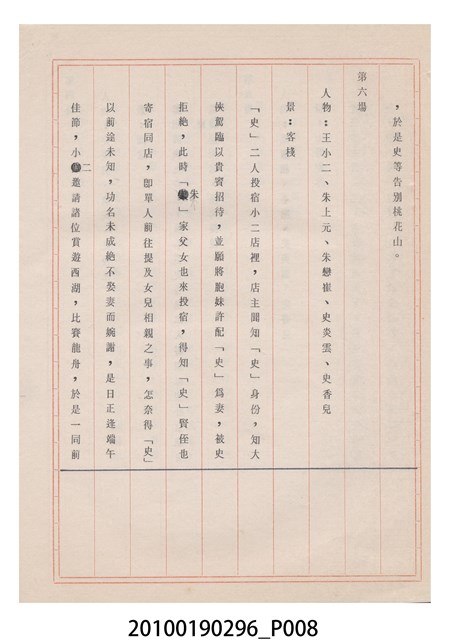 ，於是史等告別桃花山。
第六場
人物：王小二、朱上元、朱戀崔、史炎雲、史香兒
景：客棧
「史」二人投宿小二店裡，店主聞知「史」身份，知大
俠駕臨以貴賓招待，並願將胞妹許配「史」爲妻，被史
拒絶，此時「朱」家父女也來投宿，得知「史」賢侄也
寄宿同店，卽單人前往提及女兒相親之事，怎奈得「史」
以前途未知，功名未成絶不娶妻而婉謝，是日正逢端午
佳節，小二邀請諸位賞遊西湖，比賽龍舟，於是一同前
20100190296_P008